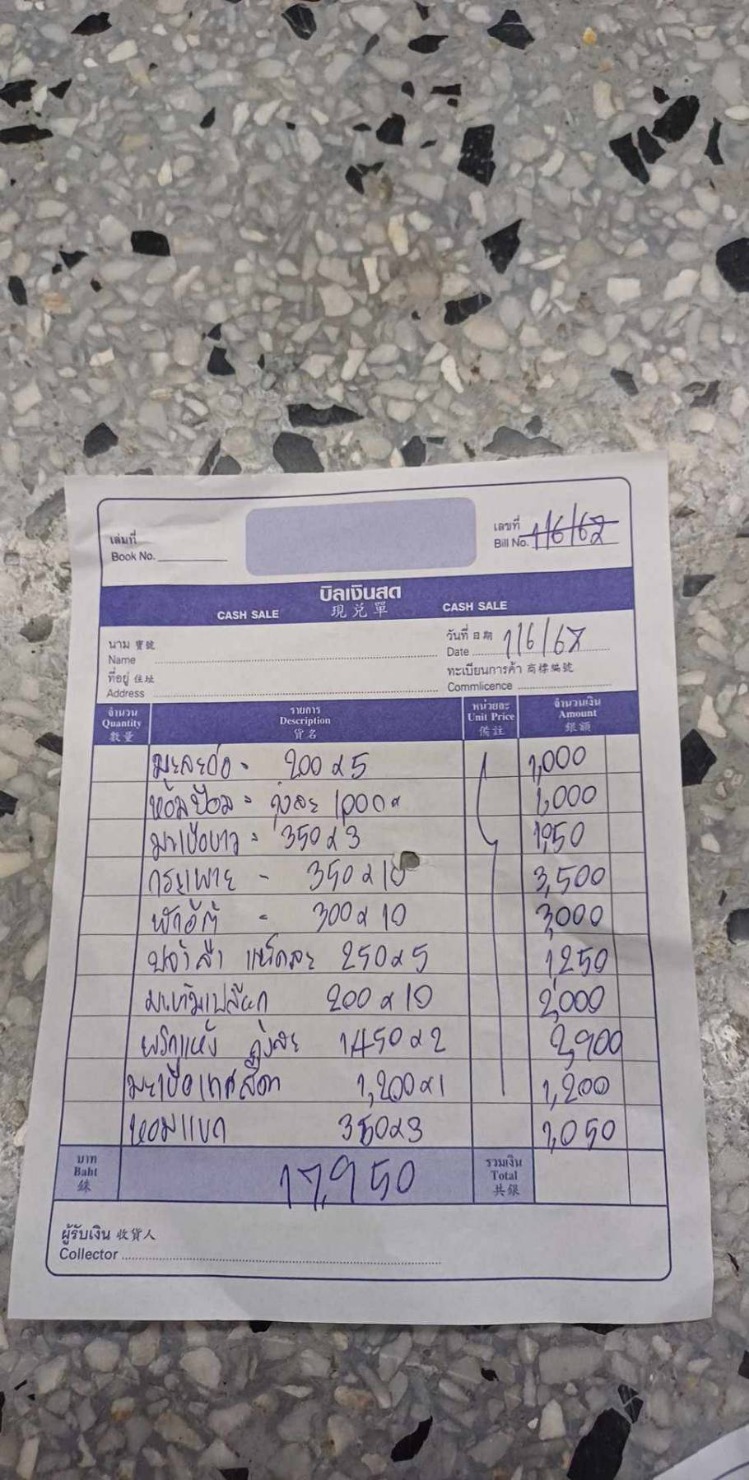 เล่มที่
Book No.
เลขที่
Bill No. 1/6/67
บิลเงินสด
CASH SALE 現兌單 CASH SALE
นาม 寶號
Name
วันที่ 日期
Date 1/6/67
ที่อยู่ 住址
Address
ทะเบียนการค้า 商標編號
Commlicence
จำนวน รายการ หน่วยละ จำนวนเงิน
Quantity Description Unit Price Amount
數量 貨名 備註 銀額
มะละกอ - 200 x 5 1,000
หอมป้อม = ถุงละ 1,000 x 1,000
มะเขือยาว = 350 x 3 1,050
กระเพาย - 350 x 10 3,500
300 x 10 3,000
250 x 5 1250
200 x 10 2,000
พริกแห้ง ถุงละ 1,450 x 2 2,900
มะเขือเทศสีดา 1,200 x 1 1,200
หอมแขก 350 x 3 1,050
บาท รวมเงิน
Baht 17,950 Total
銖 共銀
ผู้รับเงิน 收貨人
Collector